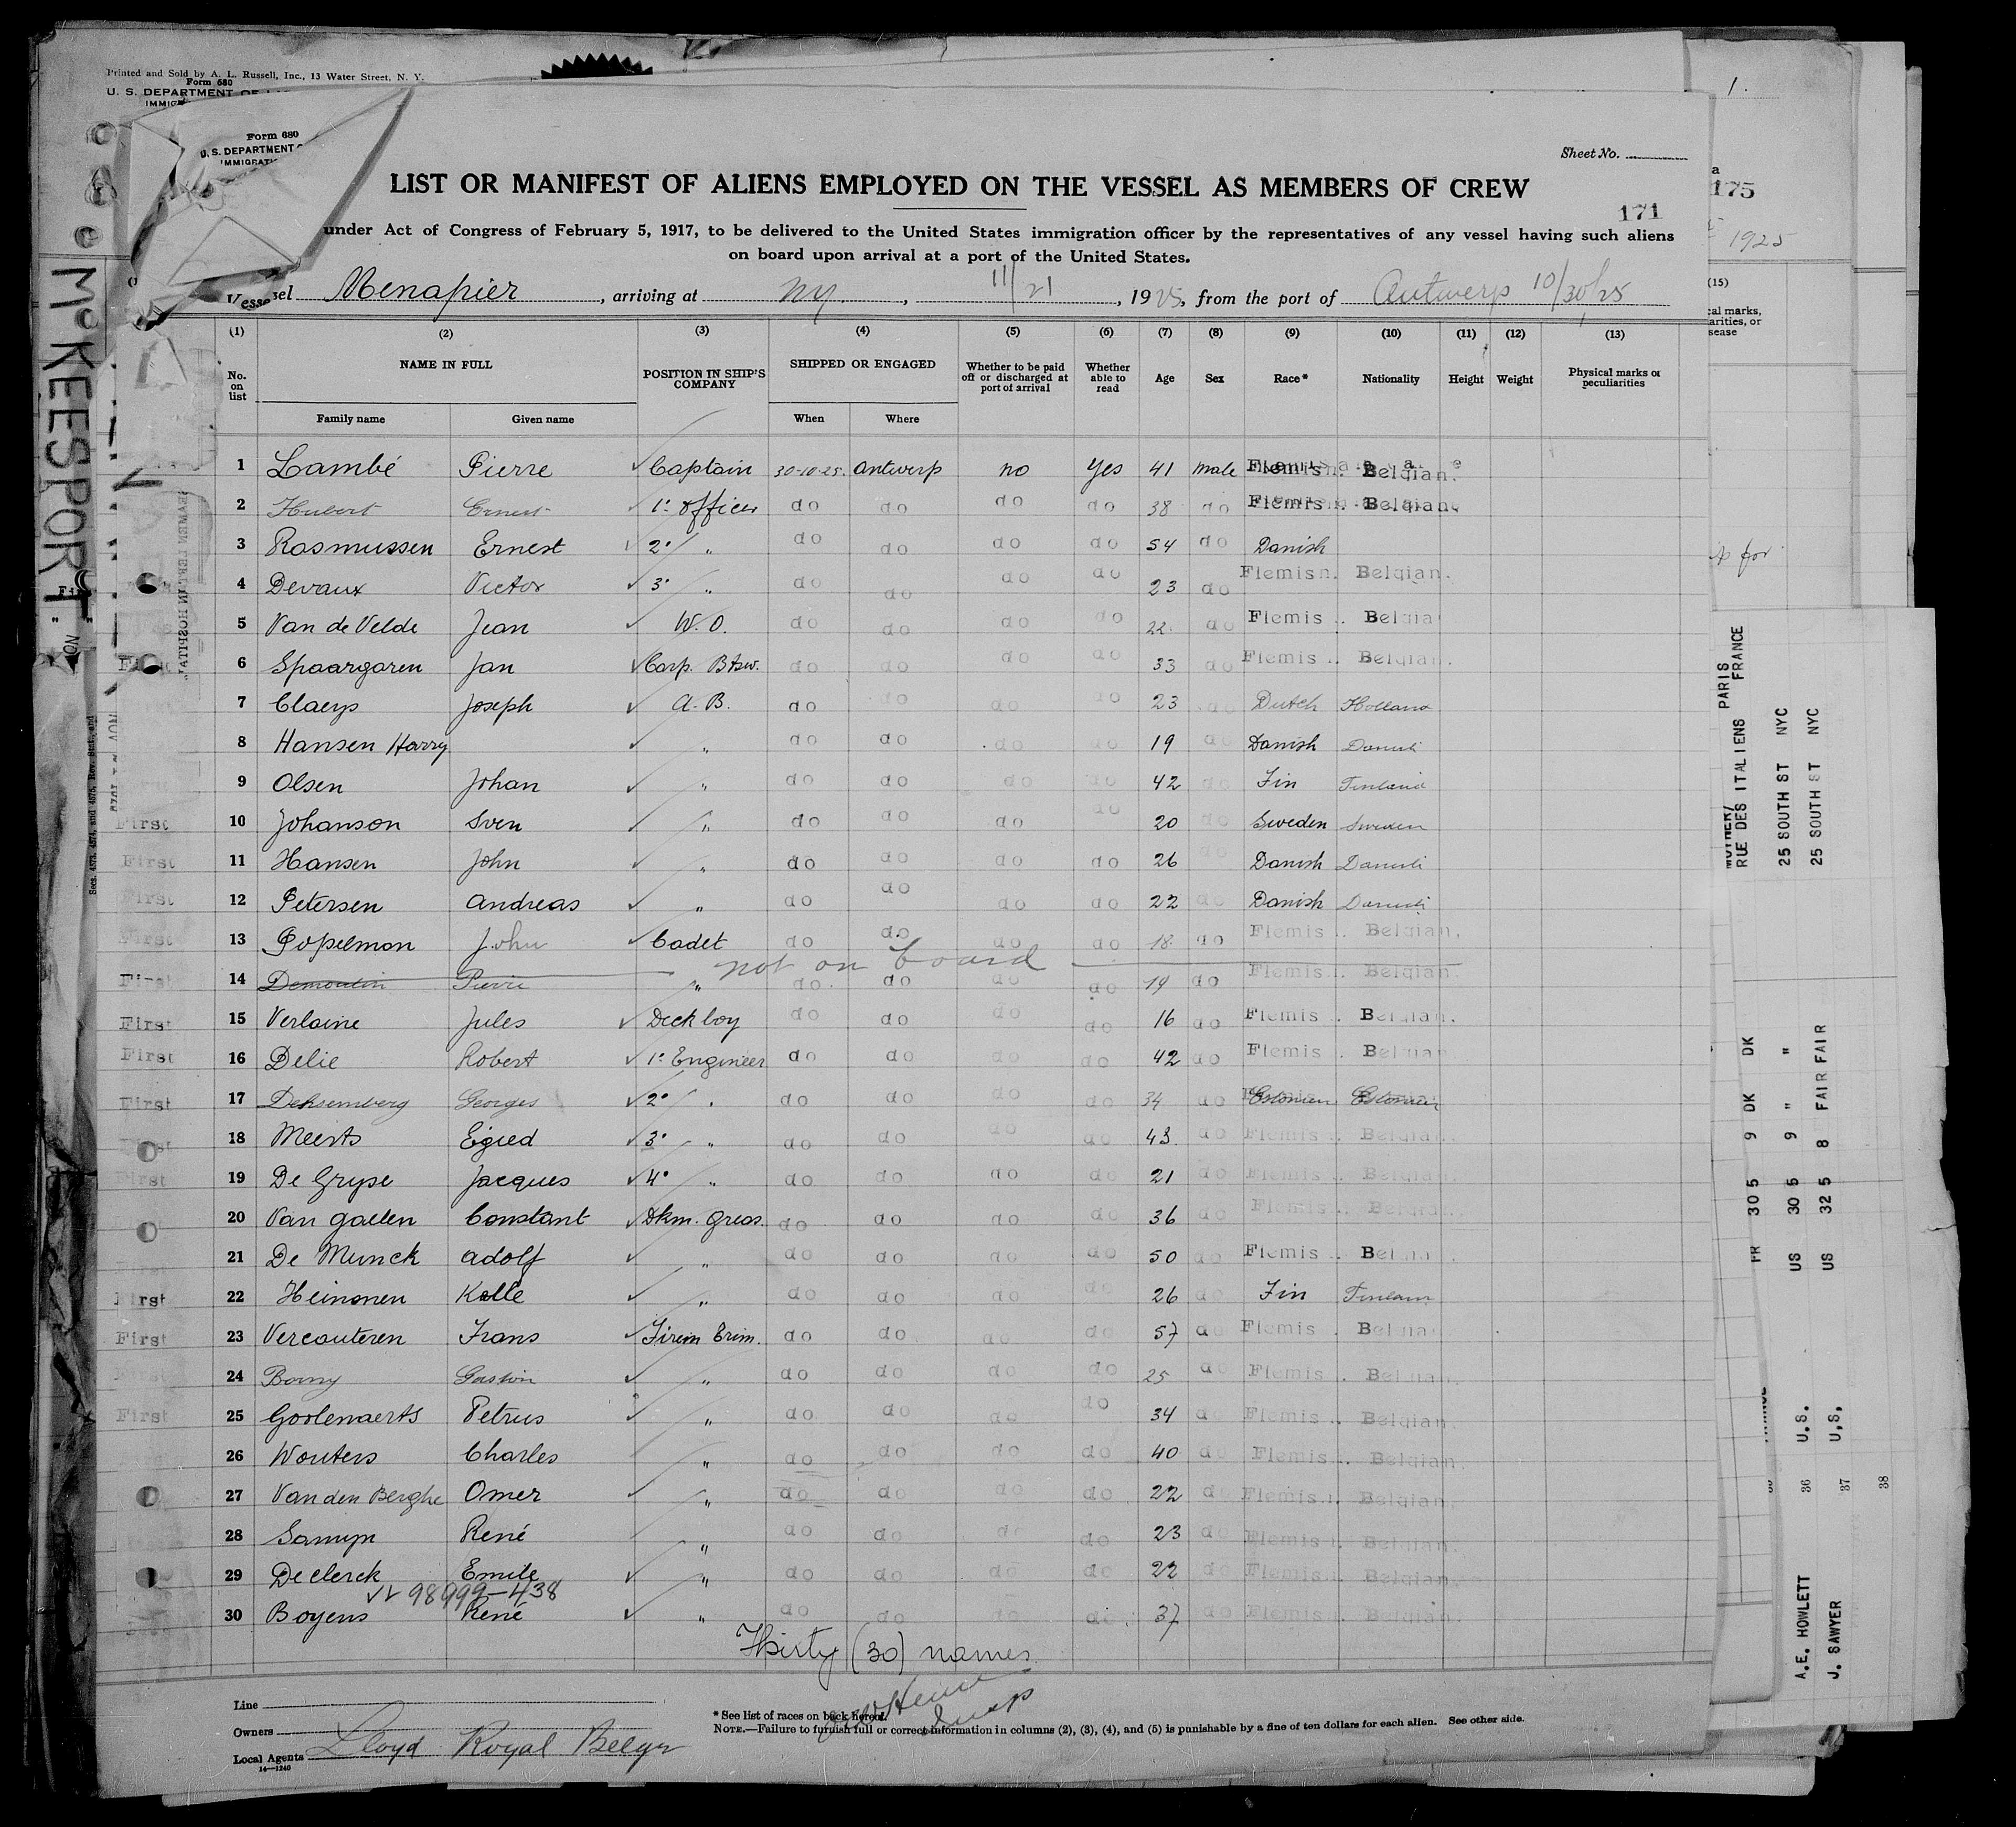 Printed and Sold by A. L. Russell, Inc., 13 Water Street, N. Y.
Form 680
U. S. DEPARTMENT OF
Form 680
U. S. DEPARTMENT
Sheet No.
LIST OR MANIFEST OF ALIENS EMPLOYED ON THE VESSEL AS MEMBERS OF CREW
175
171
under Act of Congress of February 5, 1917, to be delivered to the United States immigration officer by the representatives of any vessel having such aliens
on board upon arrival at a port of the United States.
1925
Vessel Menapier, arriving at NY., 11/21, 1925, from the port of Antwerp 10/30/25
(1) (2) (3) (4) (5) (6) (7) (8) (9) (10) (11) (12) (13)
No. on list NAME IN FULL POSITION IN SHIP'S COMPANY SHIPPED OR ENGAGED Whether to be paid off or discharged at port of arrival Whether able to read Age Sex Race* Nationality Height Weight Physical marks or peculiarities
Family name Given name When Where
1 Lambé Pierre Captain 30-10-25. Antwerp no Yes 41 Male Flemish. Belgian.
2 Hubert Ernest 1° Officer do do do do 38 do Flemish Belgian.
3 Rasmussen Ernest 2° " do do do do 54 do Danish
4 Devaux Victor 3° " do do do do 23 do Flemish. Belgian.
5 Van de Velde Jean W.O. do do do do 22 do Flemis Belgia
6 Spaargaren Jan Carp. Btsw. do do do do 33 do Flemis Belgian.
7 Claeys Joseph A. B. do do do do 23 do Dutch Holland
8 Hansen Harry " do do do do 19 do Danish Danish
9 Olsen Johan " do do do do 42 do Fin Finland
10 Johanson Sven " do do do do 20 do Sweden Sweden
11 Hansen John " do do do do 26 do Danish Danish
12 Petersen Andreas " do do do do 22 do Danish Danish
13 Popelmon John Cadet do do do do 18 do Flemis Belgian.
not on board
14 Demoulin Pierre " do do do do 19 do Flemis Belgian.
15 Verlaine Jules Deck boy do do do do 16 do Flemis Belgian.
16 Delie Robert 1° Engineer do do do do 42 do Flemis Belgian
17 Dehsemberg Georges 2° " do do do do 34 do Estonian Estonian
18 Meerts Egied 3° " do do do do 43 do Flemis Belgian.
19 De Gryse Jacques 4° " do do do do 21 do Flemis Belgian.
20 Van Gaelen Constant Dkm. Greas. do do do do 36 do Flemis Belgian
21 De Munck Adolf " do do do do 50 do Flemis Belgian
22 Heinonen Kalle " do do do do 26 do Fin Finland
23 Vercouteren Frans Firem Trim. do do do do 57 do Flemis Belgia
24 Borny Gaston " do do do do 25 do Flemis Belgian.
25 Goolenaerts Petrus " do do do do 34 do Flemis Belgian.
26 Wouters Charles " do do do do 40 do Flemis Belgian.
27 Van den Berghe Omer " do do do do 22 do Flemis Belgian.
28 Samyn René " do do do do 23 do Flemish. Belgian.
29 De Clerck Emile " do do do do 22 do Flemish. Belgian.
98999-438
30 Boyens René " do do do do 37 do Flemish. Belgian.
Thirty (30) names
Line
Owners
Local Agents Lloyd Royal Belge
14-1240
* See list of races on back hereof.
NOTE.—Failure to furnish full or correct information in columns (2), (3), (4), and (5) is punishable by a fine of ten dollars for each alien. See other side.
McKEESPORT
First
(15)
RUE DES ITALIENS PARIS FRANCE
25 SOUTH ST NYC
25 SOUTH ST NYC
FR 30 5 9 DK DK
US 30 5 9 " "
US 32 5 8 FAIR FAIR
36 U.S.
37 U.S.
38
A.E. HOWLETT
J. SAWYER